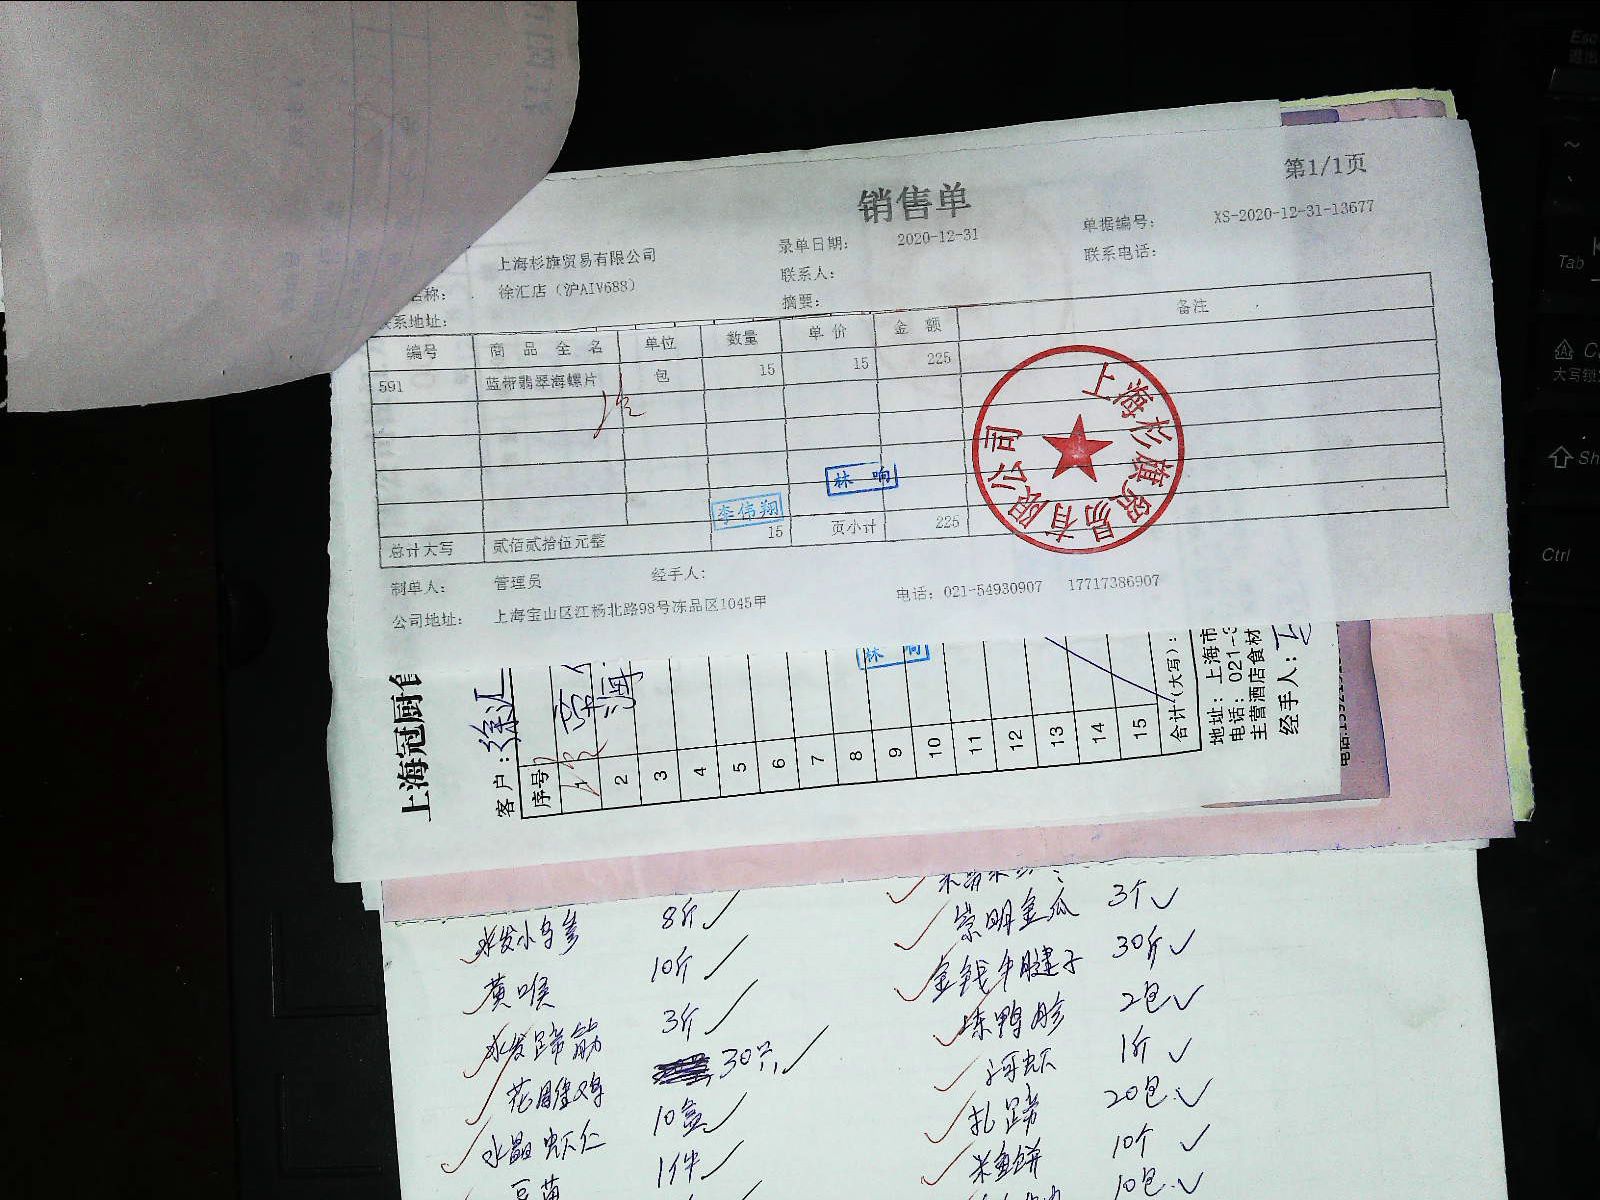 第1/1页
销售单
上海杉旗贸易有限公司 录单日期: 2020-12-31 单据编号: XS-2020-12-31-13677
名称: 徐汇店(沪AIV688) 联系人: 联系电话:
联系地址: 摘要:
编号 商品全名 单位 数量 单价 金额 备注
591 蓝桁翡翠海螺片 包 15 15 225
林响
李伟翔
总计大写 贰佰贰拾伍元整 15 页小计 225
上海杉旗贸易有限公司
制单人: 管理员 经手人:
公司地址: 上海宝山区江杨北路98号冻品区1045甲 电话: 021-54930907 17717386907
林响
上海冠厨食
客户: 徐汇
序号
1
2
3
4
5
6
7
8
9
10
11
12
13
14
15
合计(大写):
地址: 上海市
电话: 021-3
主营酒店食材
经手人:
水发小乌参 8斤
黄喉 10斤
水发蹄筋 3斤
花雕鸡 30只
水晶虾仁 10盒
豆苗 1件
崇明金瓜 3个
金钱牛腱子 30斤
冻鸭胗 2包
河虾 1斤
扎蹄 20包
米鱼饼 10个
10包
Esc
Tab
Ctrl